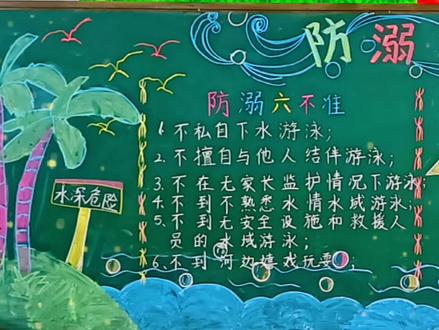 防溺
防溺六不准
1.不私自下水游泳;
2.不擅自与他人结伴游泳;
3.不在无家长监护情况下游泳;
4.不到不熟悉水情水域游泳;
5.不到无安全设施和救援人
员的水域游泳;
6.不到河边嬉戏玩耍;
水深危险